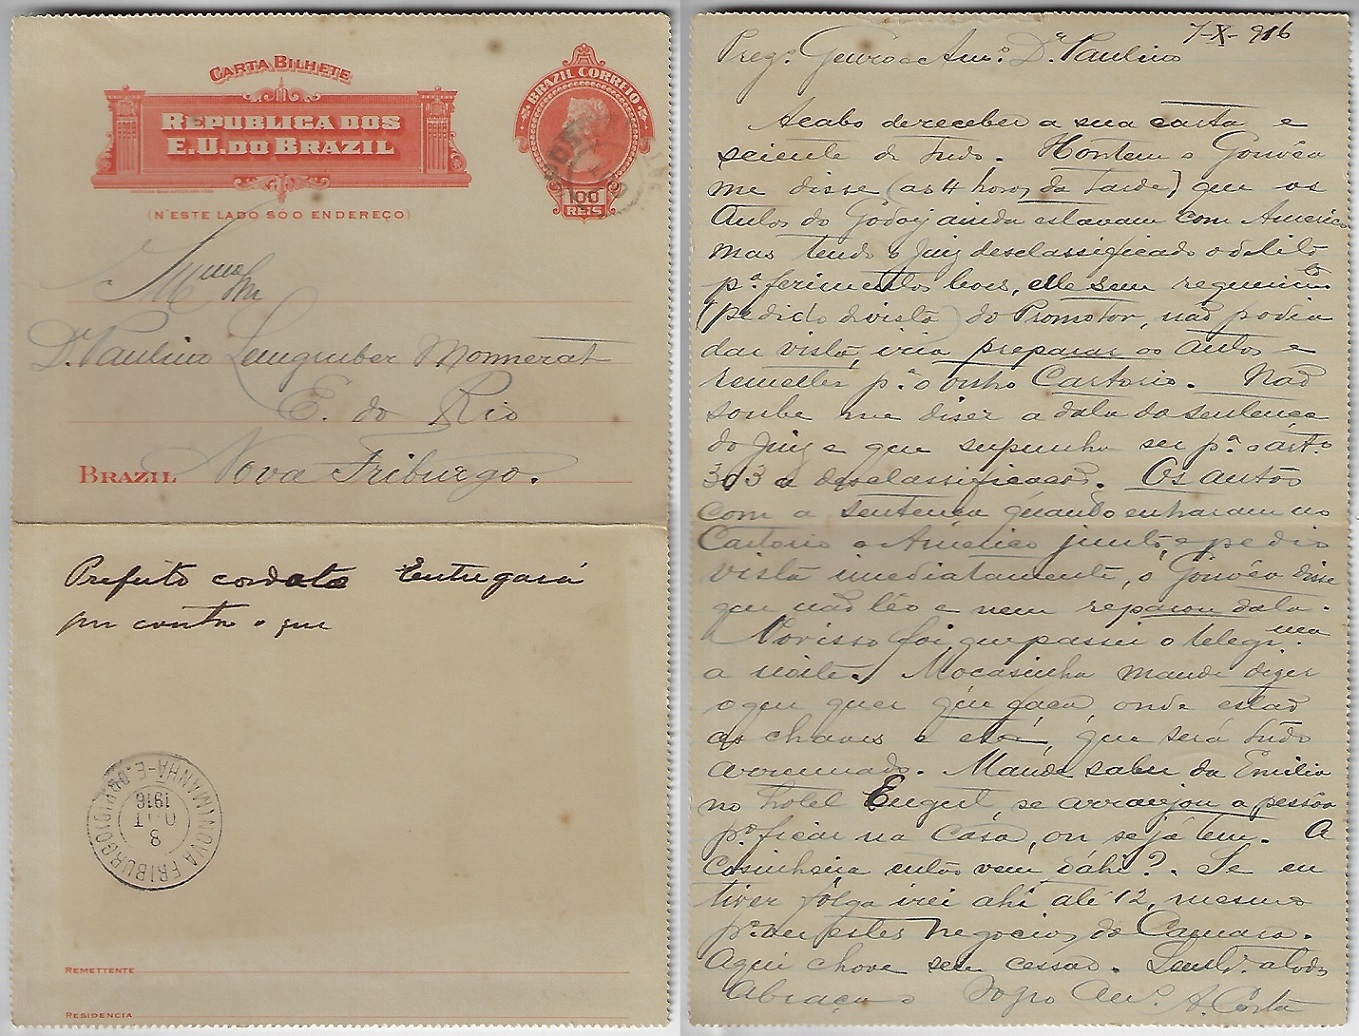 CARTA BILHETE
REPUBLICA DOS
E.U. DO BRAZIL
(N'ESTE LADO SÓ O ENDEREÇO)
BRAZIL CORREIO
100
REIS
Dr. Paulino Lemgruber Monnerat
E. do Rio
BRAZIL Nova Friburgo.
Prefeito cordato Entregará
por contra o que
NOVA FRIBURGO
8
OUT
1916
REMETTENTE
RESIDENCIA
7-X-916
Preg.º Genro e Am.º Dr. Paulino
Acabo de receber a sua carta e
sciente de tudo. Hontem o Gouvêa
me disse (as 4 horas da tarde) que os
Autos do Godoy ainda estavam com Americo
mas tendo o Juiz desclassificado o delito
p.ª ferimentos leves, elle sem requerim.to
(pedido de vista) do Promotor, não podia
dar vista, iria preparar os autos e
remetter p.ª o outro Cartorio. Não
soube me dizer a data da sentença
do Juiz e que supunha ser p.ª o art.º
303 a desclassificação. Os autos
com a sentença quando entraram no
Cartorio o Americo junto, e pedio
vista immediatamente, o Gouvêa disse
que não lêo e nem reparou data.
Por isso foi que passei o telegr.ma
a noite. Mocasinha mande dizer
o que quer que faça, onde estão
as chaves e etc, que será tudo
arrumado. Mande saber da Emilia
no hotel Engert, se arranjou a pessôa
p.ª ficar na casa, ou se já tem. A
cosinheira então vem dahi? Se eu
tiver folga irei ahi até 12, mesmo
p.ª negocios da Camara.
Aqui chove sem cessar. a todos
Abraça o Sogro Am.º A. Costa